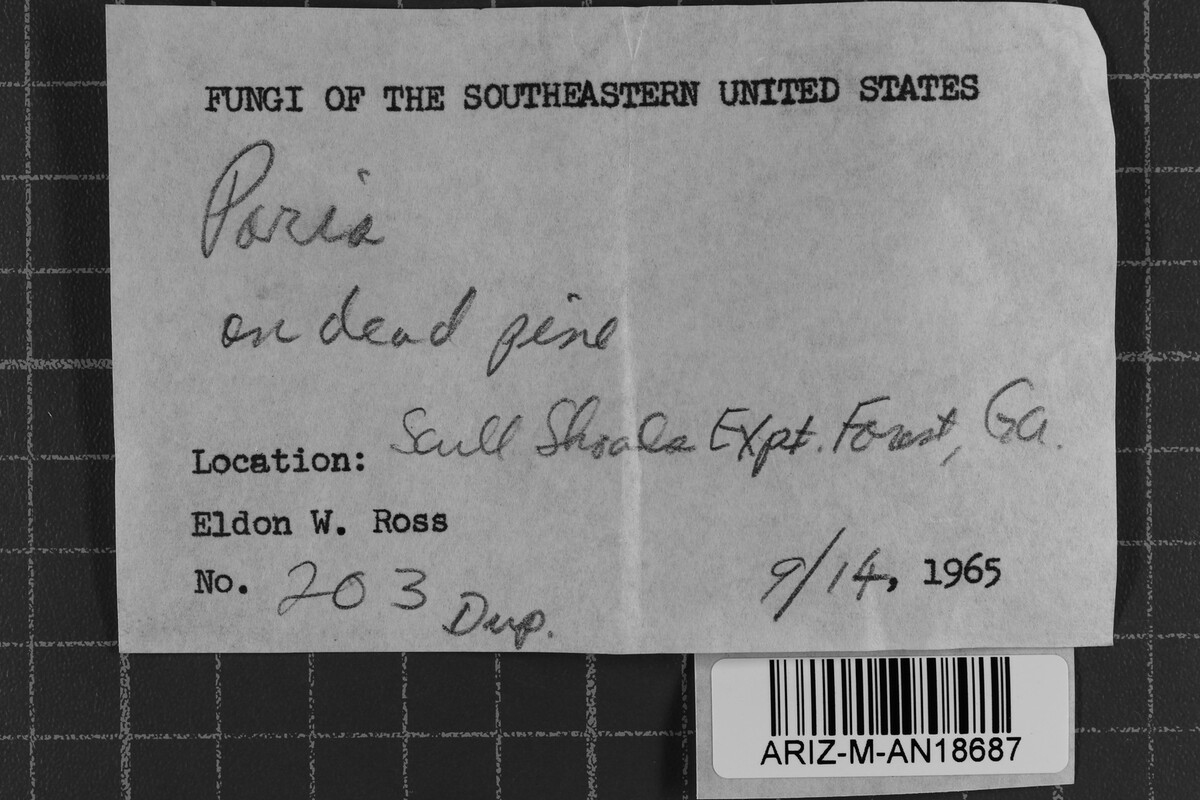 FUNGI OF THE SOUTHEASTERN UNITED STATES
Poria
on dead pine
Location: Scull Shoals Expt. Forest, Ga.
Eldon W. Ross
No. 203 Dup. 9/14, 1965
ARIZ-M-AN18687